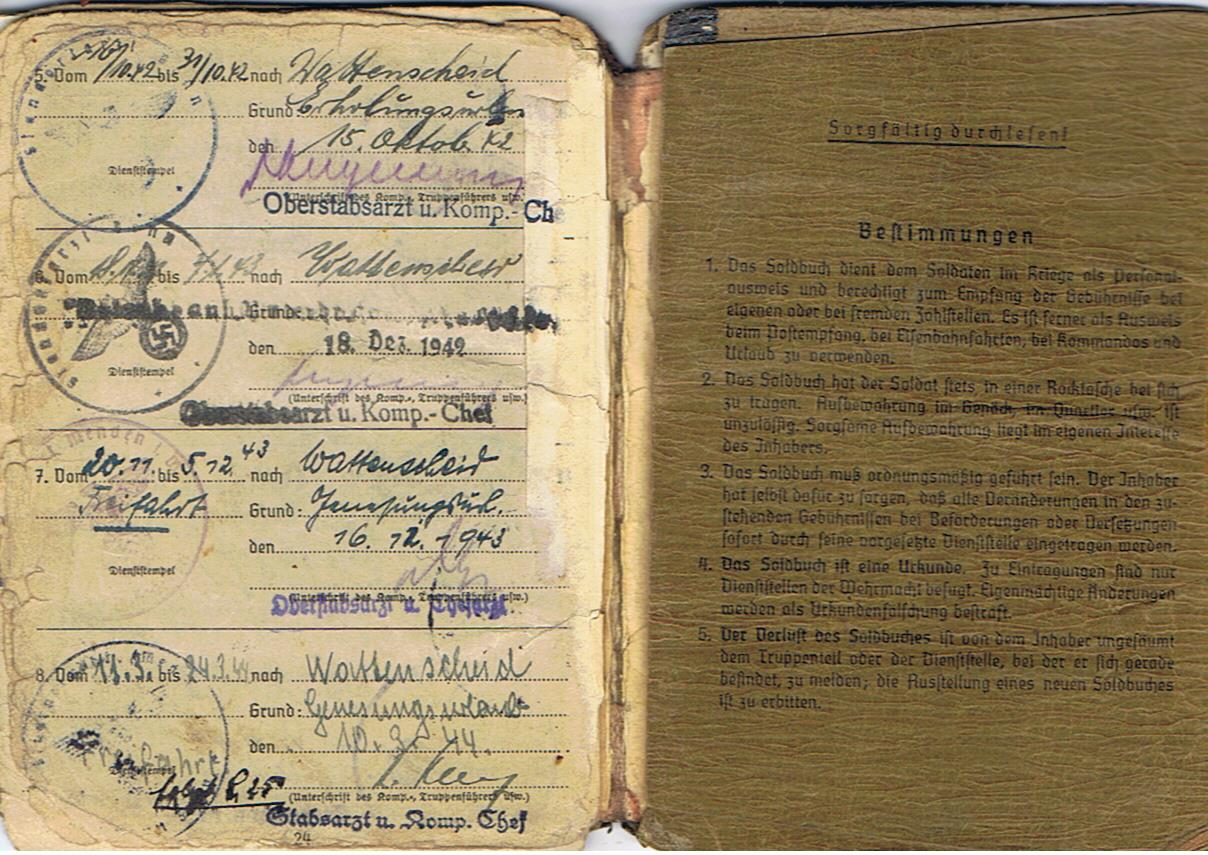 5. Vom /10.42 bis 31/10.42 nach Wattenscheid
Grund Erholungsurlau
den 15. Oktob. 42
Dienststempel
(Unterschrift des Komp., Truppenführers usw.
Oberstabsarzt u. Komp.- Ch
6. Vom bis nach Wattenscheid
Grund
den 18. Dez. 1942
Dienststempel
(Unterschrift des Komp., Truppenführers usw.)
Oberstabsarzt u. Komp.- Chef
7. Vom 20.11. bis 5.12. 43 nach Wattenscheid
Freifahrt Grund: Genesungsurl.
den 16. 12. 1943
Dienststempel
(Unterschrift des Komp., Truppenführers usw.)
Oberstabsarzt u. Chefarzt
8. Vom 11.3. bis 24.3.44 nach Wattenscheid
Grund: Genesungsurlaub
den 10. 3. 44.
Freifahrt
Dienststempel
(Unterschrift des Komp., Truppenführers usw.)
Stabsarzt u. Komp. Chef
24
Sorgfältig durchlesen!
Bestimmungen
1. Das Soldbuch dient dem Soldaten im Kriege als Personal-
ausweis und berechtigt zum Empfang der Gebührnisse bei
eigenen oder bei fremden Zahlstellen. Es ist ferner als Ausweis
beim Postempfang, bei Eisenbahnfahrten, bei Kommandos und
Urlaub zu verwenden.
2. Das Soldbuch hat der Soldat stets in einer Rocktasche bei sich
zu tragen. Aufbewahrung im Gepäck, im Quartier usw. ist
unzulässig. Sorgsame Aufbewahrung liegt im eigenen Interesse
des Inhabers.
3. Das Soldbuch muß ordnungsmäßig geführt sein. Der Inhaber
hat selbst dafür zu sorgen, daß alle Veränderungen in den zu-
stehenden Gebührnissen bei Beförderungen oder Versetzungen
sofort durch seine vorgesetzte Dienststelle eingetragen werden.
4. Das Soldbuch ist eine Urkunde. Zu Eintragungen sind nur
Dienststellen der Wehrmacht befugt. Eigenmächtige Änderungen
werden als Urkundenfälschung bestraft.
5. Der Verlust des Soldbuches ist von dem Inhaber ungesäumt
dem Truppenteil oder der Dienststelle, bei der er sich gerade
befindet, zu melden; die Ausstellung eines neuen Soldbuches
ist zu erbitten.